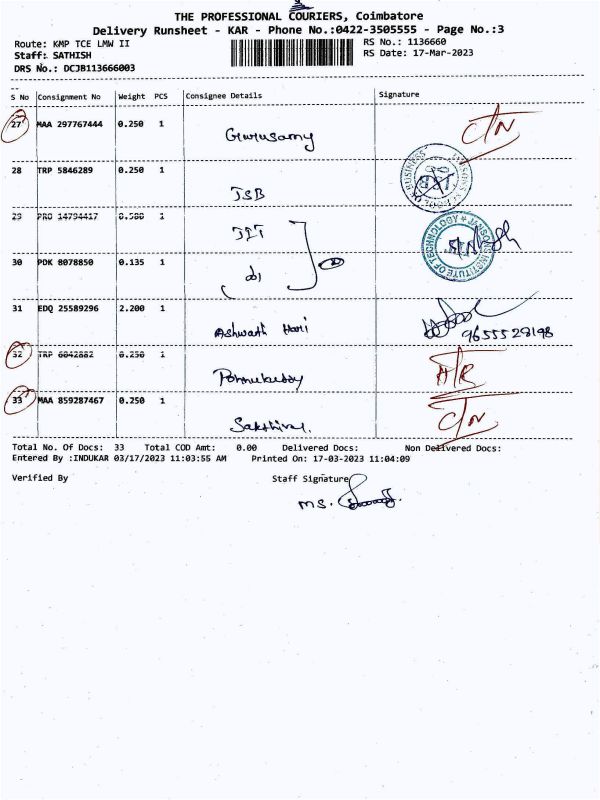 THE PROFESSIONAL COURIERS, Coimbatore
Delivery Runsheet - KAR - Phone No.:0422-3505555 - Page No.:3
Route: KMP TCE LMW II RS No.: 1136660
Staff: SATHISH RS Date: 17-Mar-2023
DRS No.: DCJB113666003
S No Consignment No Weight PCS Consignee Details Signature
27 MAA 297767444 0.250 1 Gurusamy C/N
28 TRP 5846289 0.250 1 JSB
29 PRO 14794417 0.500 1 JIT
30 PDK 8078850 0.135 1
31 EDQ 25589296 2.200 1 Ashwath Hari 9655528198
32 TRP 6042882 0.250 1
33 MAA 859287467 0.250 1 C/N
Total No. Of Docs: 33 Total COD Amt: 0.00 Delivered Docs: Non Delivered Docs:
Entered By :INDUKAR 03/17/2023 11:03:55 AM Printed On: 17-03-2023 11:04:09
Verified By Staff Signature
MS.